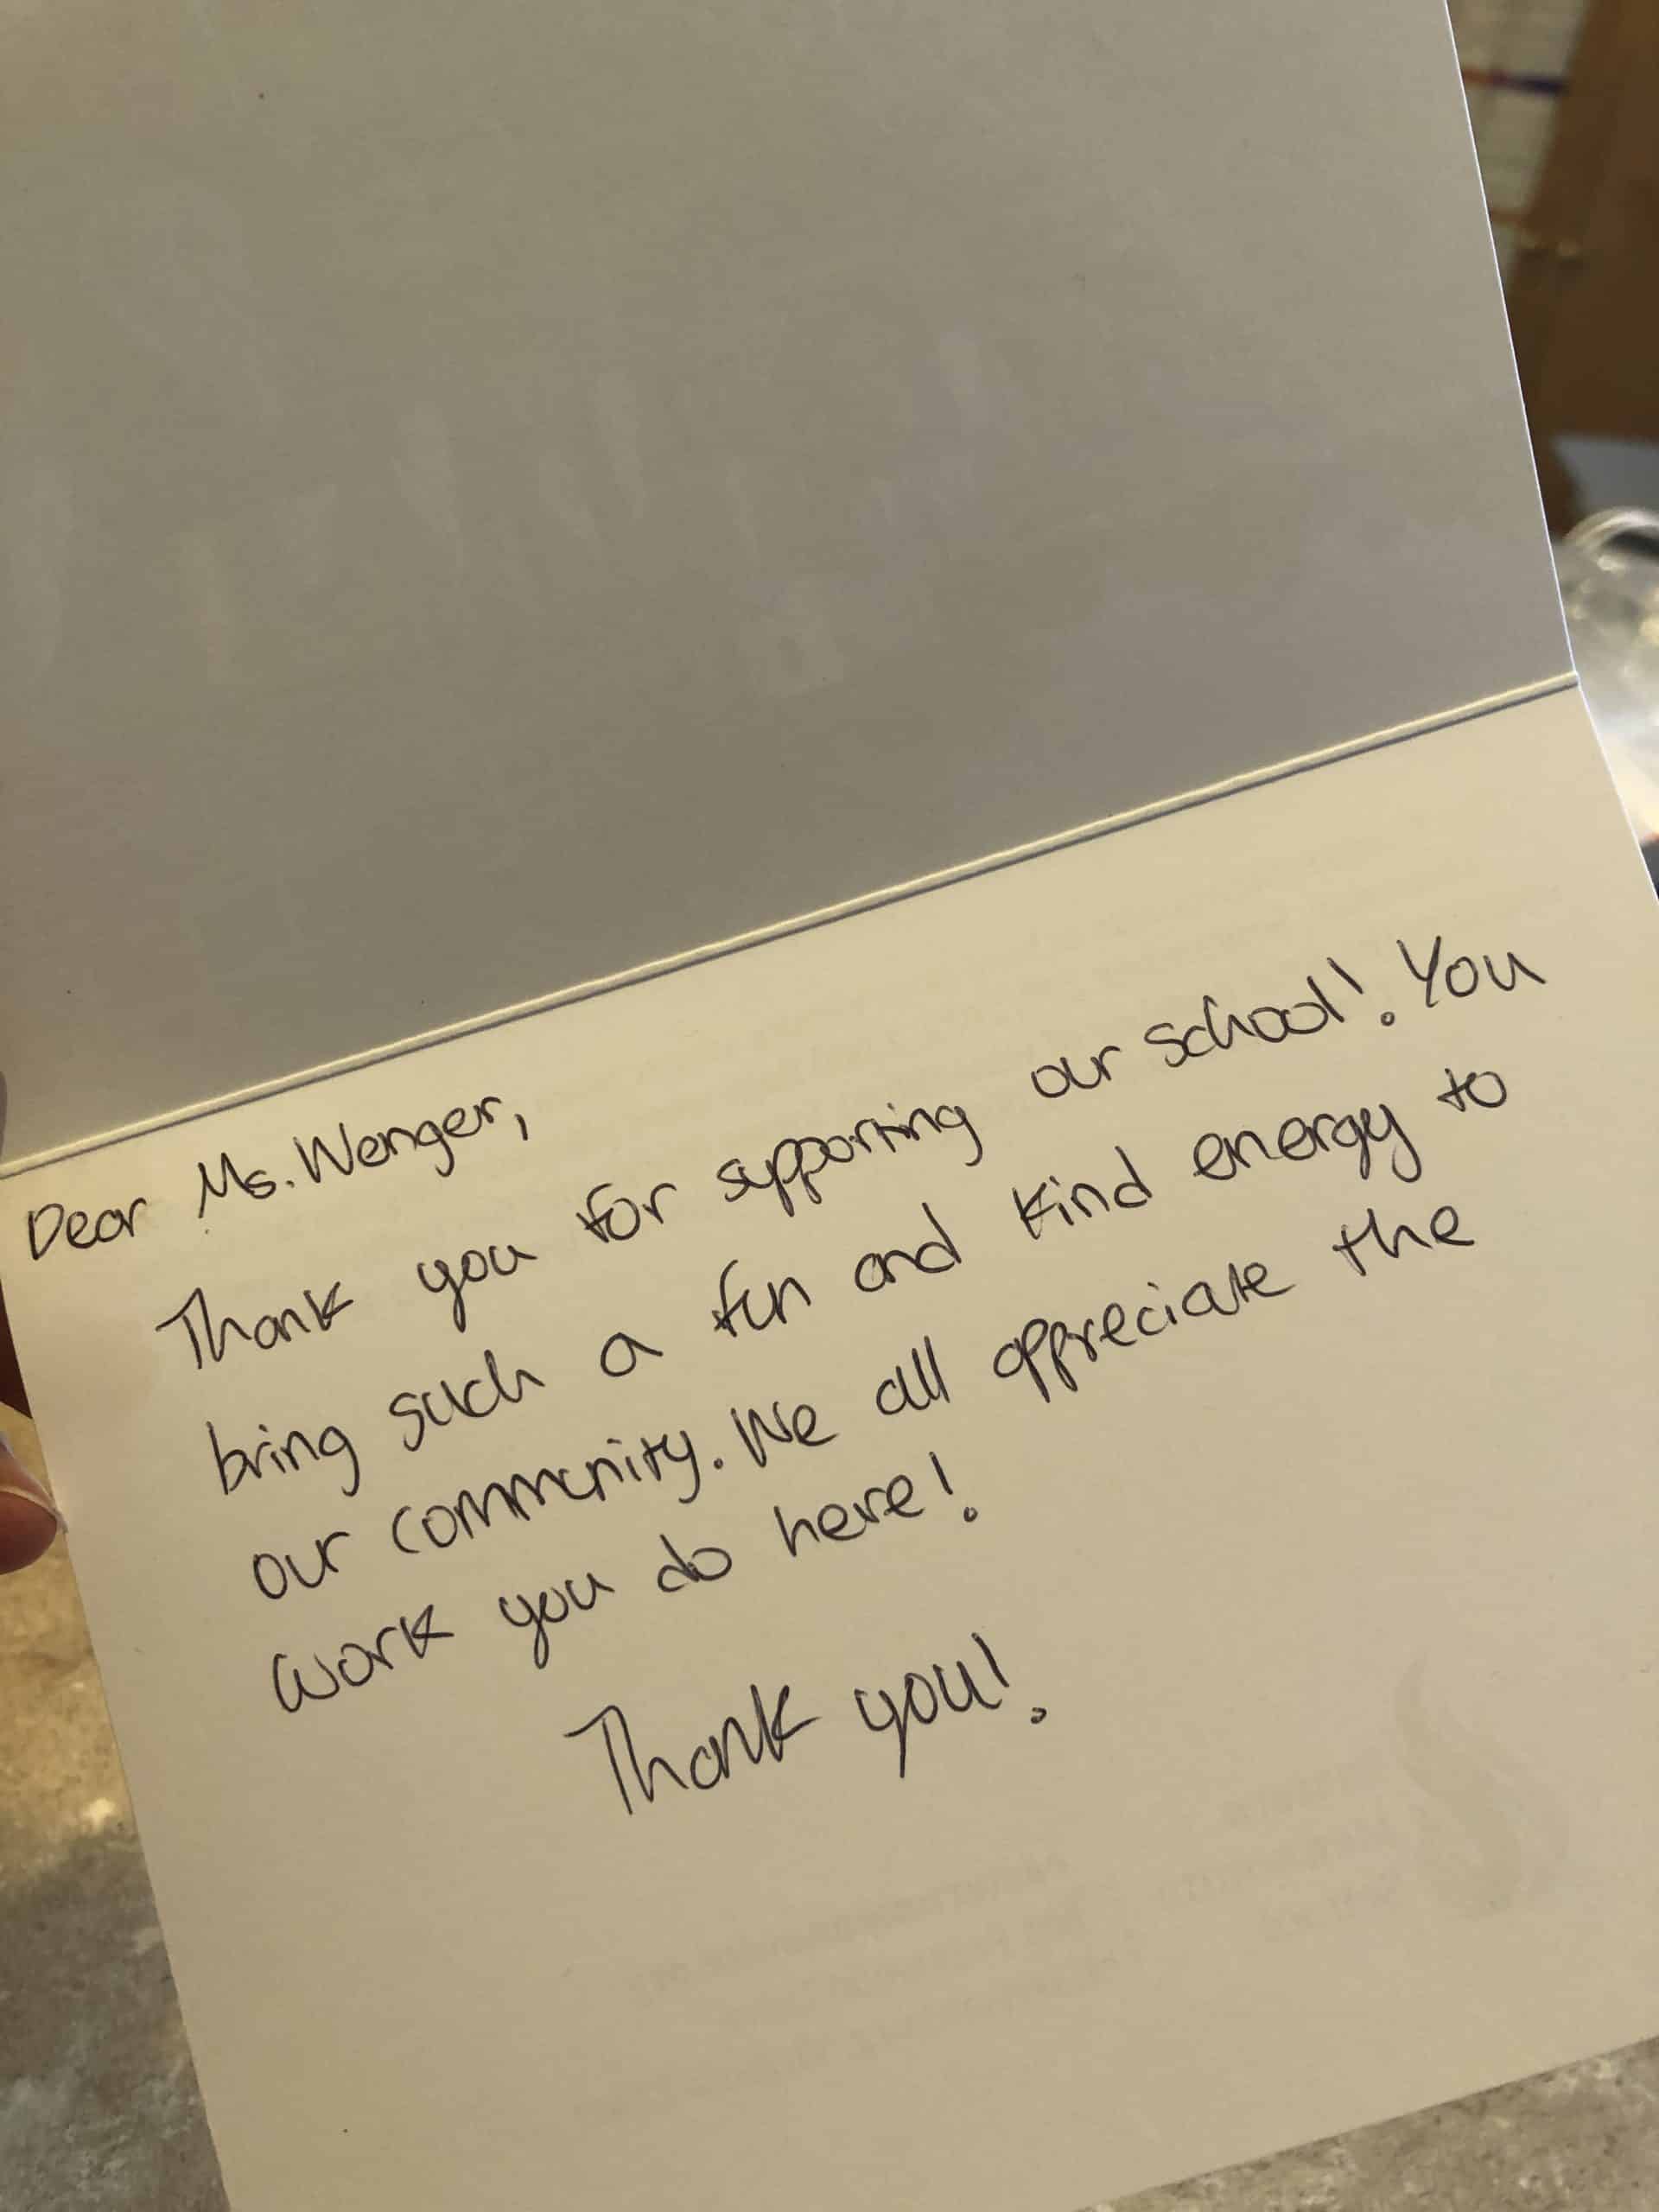 Dear Ms. Wenger,
Thank you for supporting our school! You
bring such a fun and kind energy to
our community. We all appreciate the
work you do here!
Thank you!